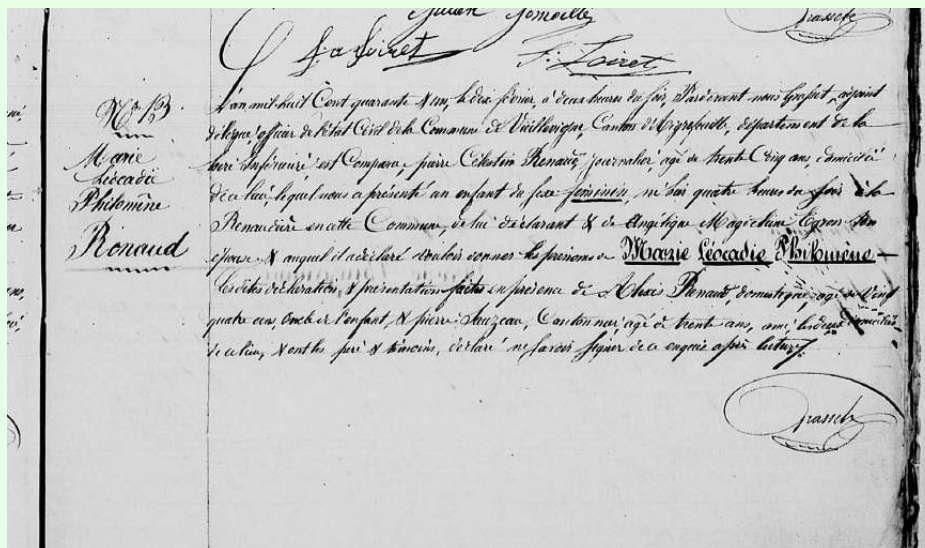 Julien Jomeille
Grasset
f. a Loiret
F. Loiret
N° 13.
Marie
Léocadie
Philomène
Renaud
L'an mil huit Cent quarante & un, le dix février, à deux heures du soir, Pardevant nous Grasset, adjoint
délégué, officier de l'état Civil de la Commune de Vieillevigne, Canton d'Aigrefeuille, département de la
Loire Inférieure est Comparu, pierre Célestin Renaud, journalier, agé de trente Cinq ans, domicilié
de ce lieu lequel nous a présenté un enfant du sexe féminin, né hier quatre heures du soir à la
Renaudière en cette Commune, de lui déclarant & de Angélique Magdelaine Egron son
épouse & auquel il a déclaré vouloir donner les prénoms de Marie Léocadie Philomène –
Lesdites déclaration & présentation faites en présence de Alexis Renaud domestique agé de Vingt
quatre ans, oncle de l'enfant, & pierre Sauzeau, Cantonnier agé de trente ans, ami, les deux domiciliés
de ce lieu, & ont les père & témoins, déclaré ne savoir signer de ce enquis après lecture.
Grasset